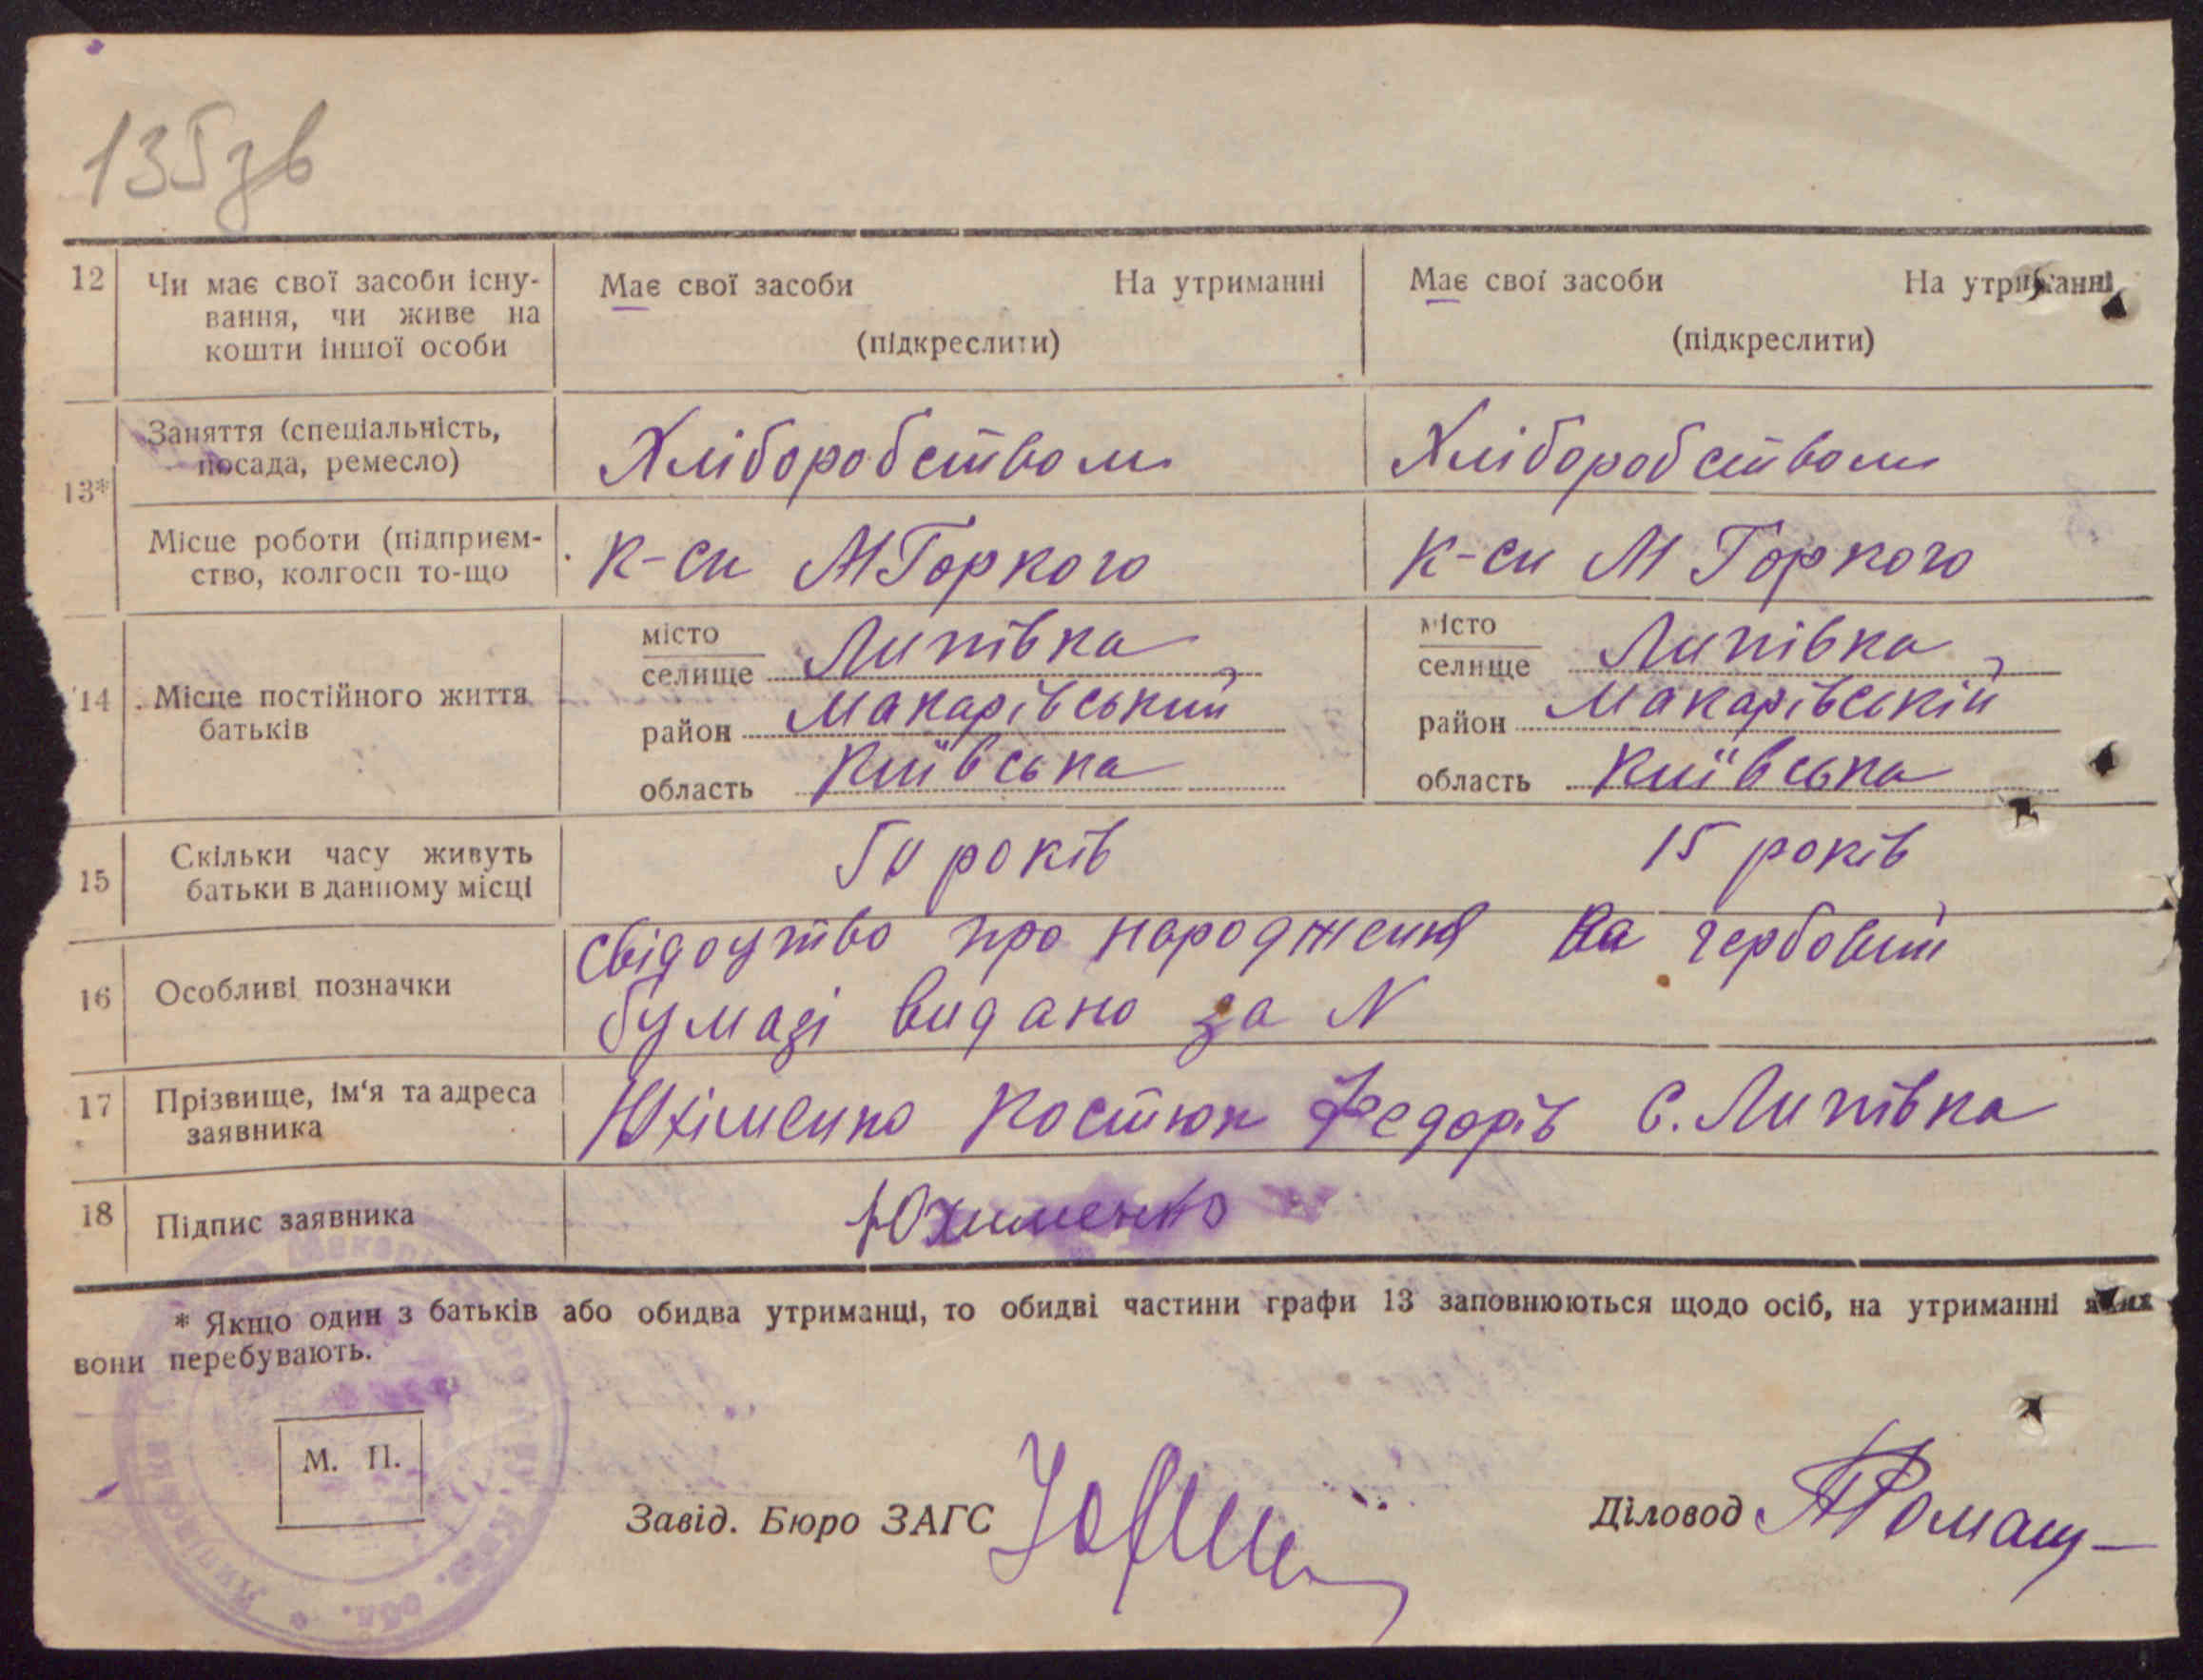 135зв
12 Чи має свої засоби існу- Має свої засоби На утриманні Має свої засоби На утриманні
вання, чи живе на
кошти іншої особи (підкреслити) (підкреслити)
Заняття (спеціальність,
посада, ремесло) Хліборобством Хліборобством
13*
Місце роботи (підприєм-
ство, колгосп то-що К-си М Горкого К-си М Горкого
місто місто
селище Липівка селище Липівка
14 Місце постійного життя район Макарівський район Макарівській
батьків
область Київська область Київська
15 Скільки часу живуть 50 років 15 років
батьки в данному місці
16 Особливі позначки свідоцтво про народження на гербовий
бумазі видано за N
17 Прізвище, ім'я та адреса
заявника Юхіменко Костюк Федорів С. Липівка
18 Підпис заявника Юхименко
* Якщо один з батьків або обидва утриманці, то обидві частини графи 13 заповнюються щодо осіб, на утриманні яких
вони перебувають.
М. П.
Завід. Бюро ЗАГС Діловод